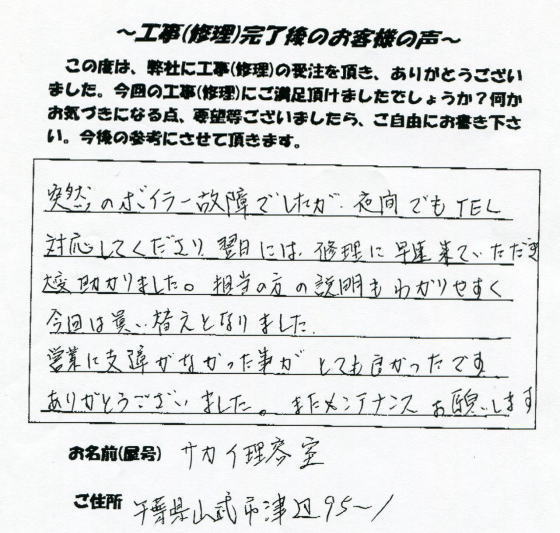 ～工事(修理)完了後のお客様の声～
この度は、弊社に工事(修理)の受注を頂き、ありがとうござい
ました。今回の工事(修理)にご満足頂けましたでしょうか？何か
お気づきになる点、要望等ございましたら、ご自由にお書き下さ
い。今後の参考にさせて頂きます。
突然のボイラー故障でしたが、夜間でもTEL
対応してくださり、翌日には、修理に早速来ていただき
大変助かりました。担当の方の説明もわかりやすく
今回は買い替えとなりました。
営業に支障がなかった事がとても良かったです
ありがとうございました。またメンテナンスお願いします
お名前(屋号) サカイ理容室
ご住所 千葉県山武市津辺95～1